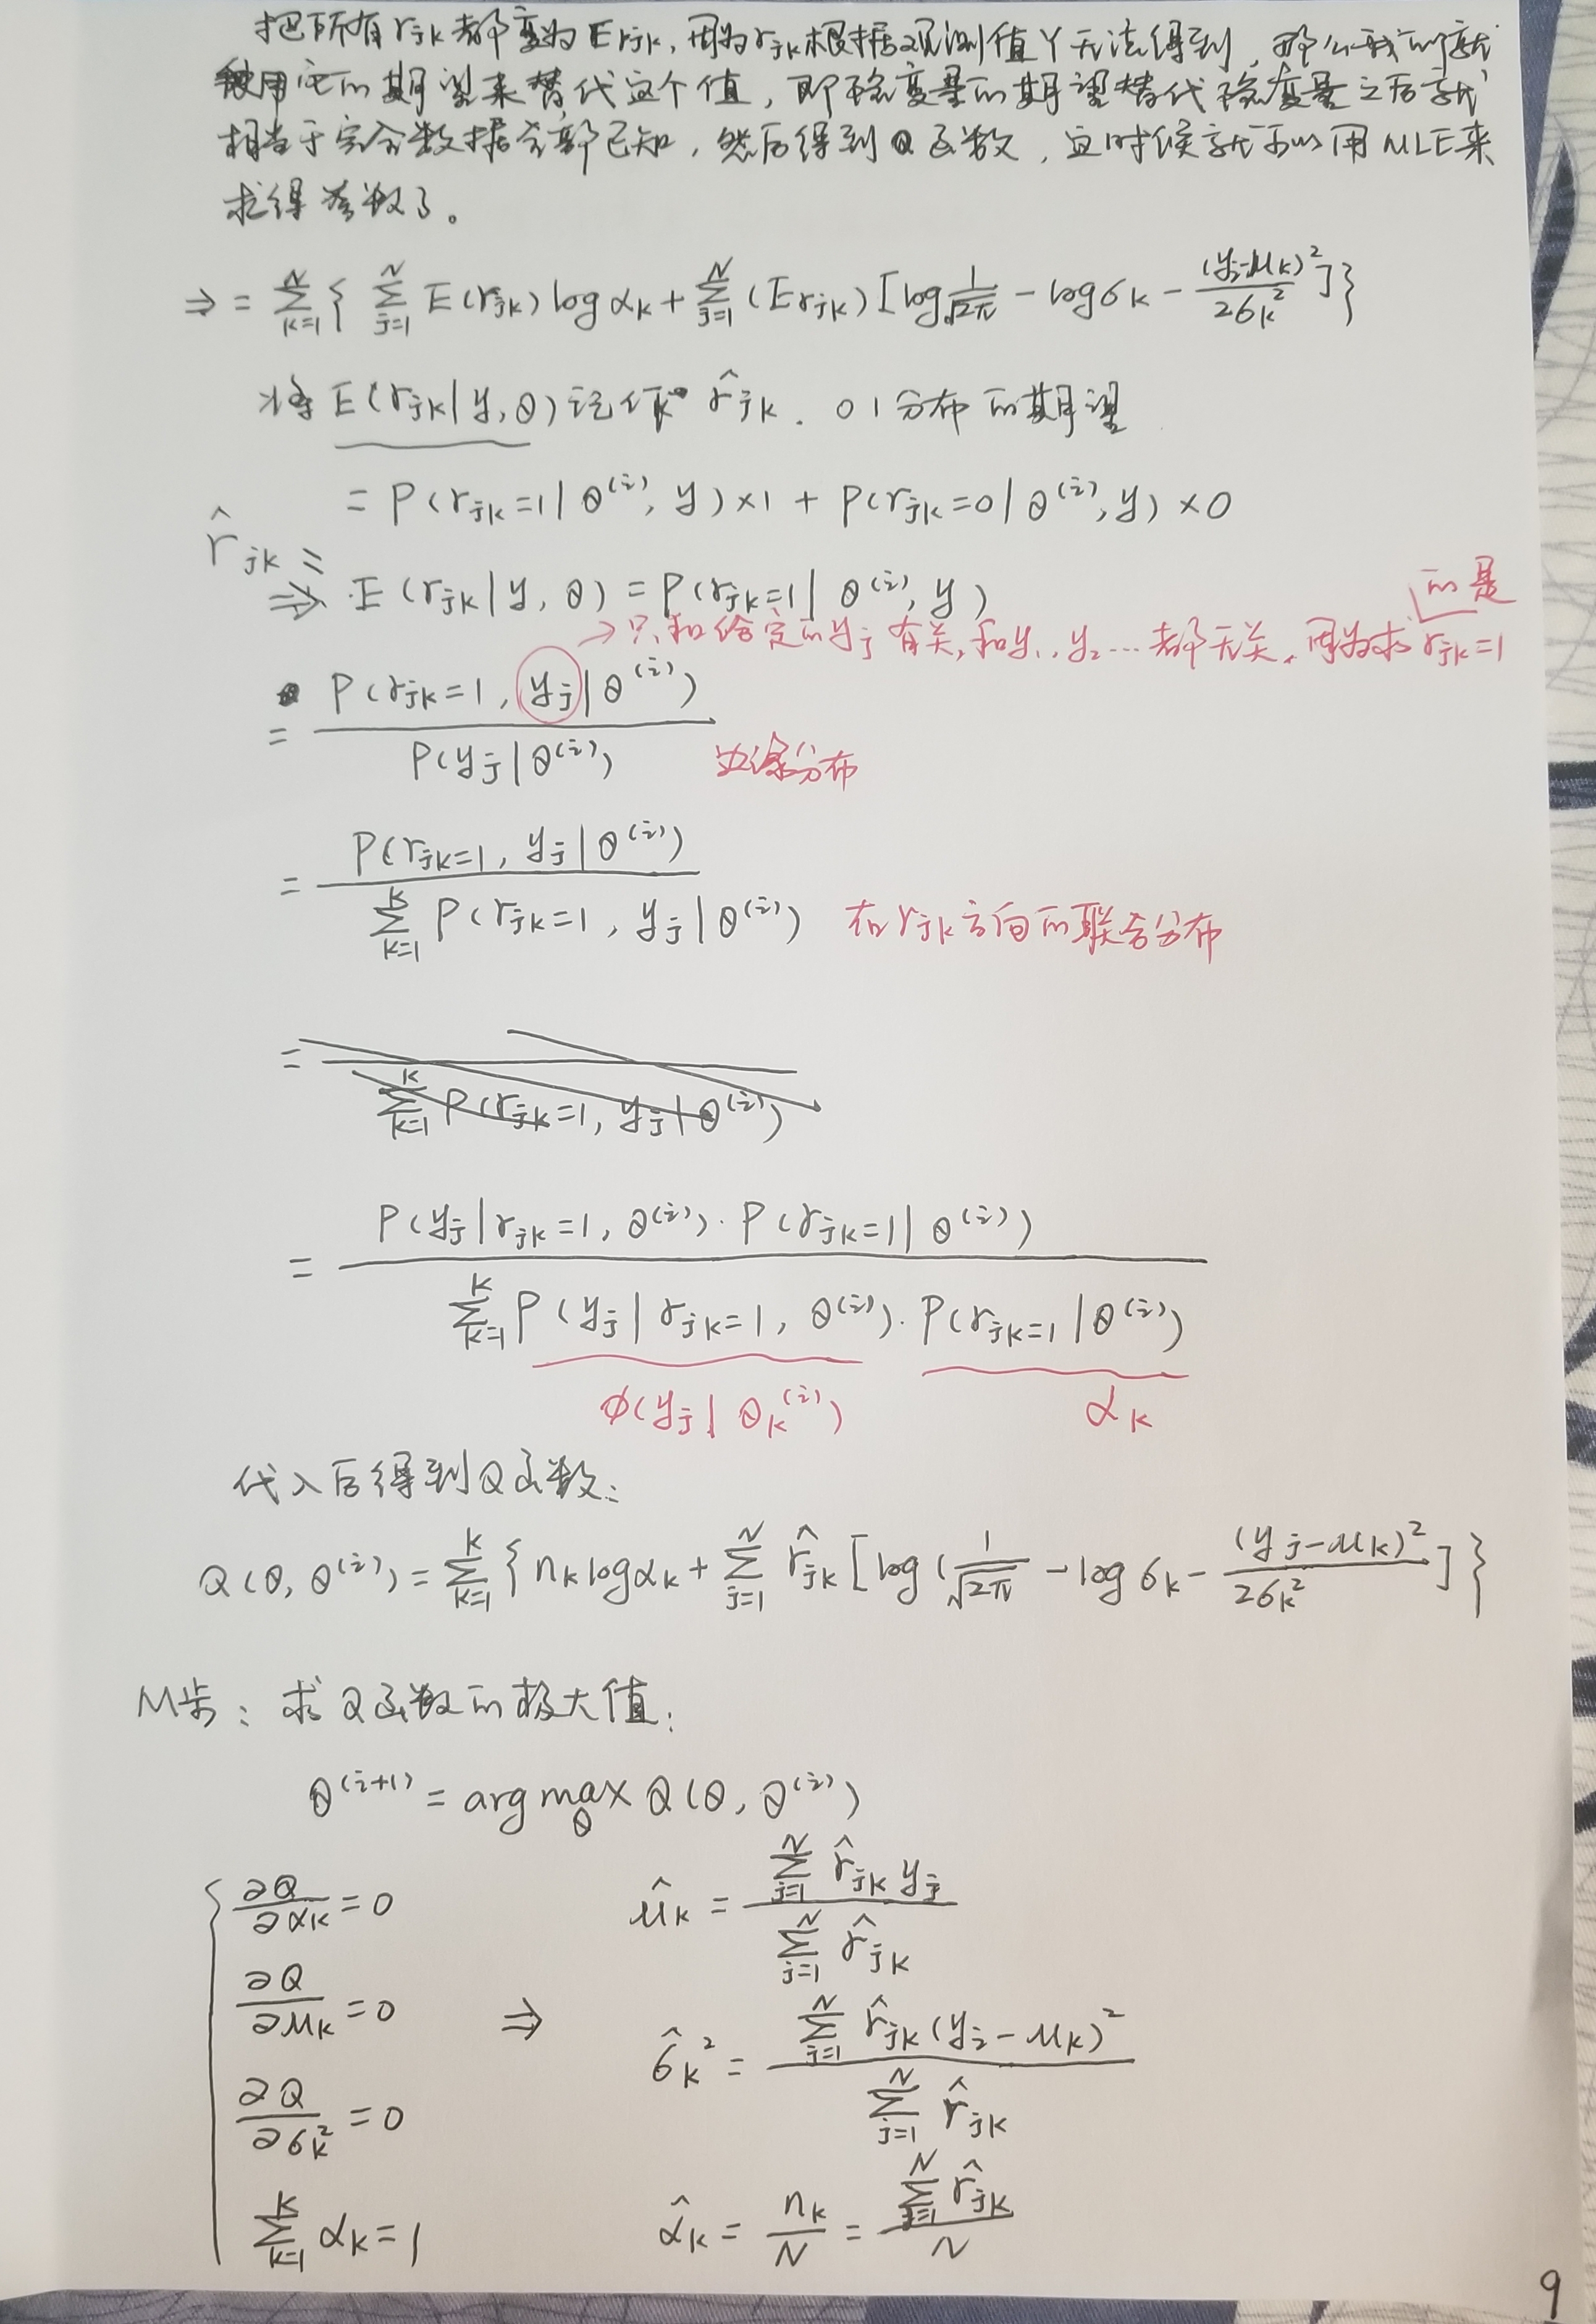 把所有γjk都变为Eγjk,因为γjk根据观测值Y无法得到,那么我们就
使用它的期望来替代这个值,即隐变量的期望替代隐变量之后就
相当于完全数据全部已知,然后得到Q函数,这时候就可以用MLE来
求得参数了。
⇒ = ∑_{k=1}^{N} { ∑_{j=1}^{N} E(γjk) log αk + ∑_{j=1}^{N} (Eγjk) [log 1/√2π − log σk − (yj−μk)²/2σk²] }
将 E(γjk|y,θ) 记作 γ̂jk. 01分布的期望
= P(γjk=1|θ^(i), y)×1 + P(γjk=0|θ^(i), y)×0
γ̂jk =
⇒ E(γjk|y,θ) = P(γjk=1|θ^(i), y)
→只和给定的yj有关,和y1,y2…都无关,因为求的是γjk=1
= P(γjk=1, yj|θ^(i)) / P(yj|θ^(i)) 边缘分布
= P(γjk=1, yj|θ^(i)) / ∑_{k=1}^{K} P(γjk=1, yj|θ^(i)) 在γjk方向的联合分布
= ∑_{k=1}^{K} P(γjk=1, yj|θ^(i))
= P(yj|γjk=1, θ^(i))·P(γjk=1|θ^(i)) / ∑_{k=1}^{K} P(yj|γjk=1, θ^(i))·P(γjk=1|θ^(i))
φ(yj|θk^(i)) αk
代入后得到Q函数:
Q(θ, θ^(i)) = ∑_{k=1}^{K} { nk log αk + ∑_{j=1}^{N} γ̂jk [log (1/√2π − log σk − (yj−μk)²/2σk²] }
M步:求Q函数的极大值:
θ^(i+1) = arg max_θ Q(θ, θ^(i))
{ ∂Q/∂αk = 0 μ̂k = ∑_{j=1}^{N} γ̂jk yj / ∑_{j=1}^{N} γ̂jk
∂Q/∂μk = 0 ⇒ σ̂k² = ∑_{j=1}^{N} γ̂jk (yi−μk)² / ∑_{j=1}^{N} γ̂jk
∂Q/∂σk² = 0
∑_{k=1}^{K} αk = 1 α̂k = nk/N = ∑_{j=1}^{N} γ̂jk / N
9